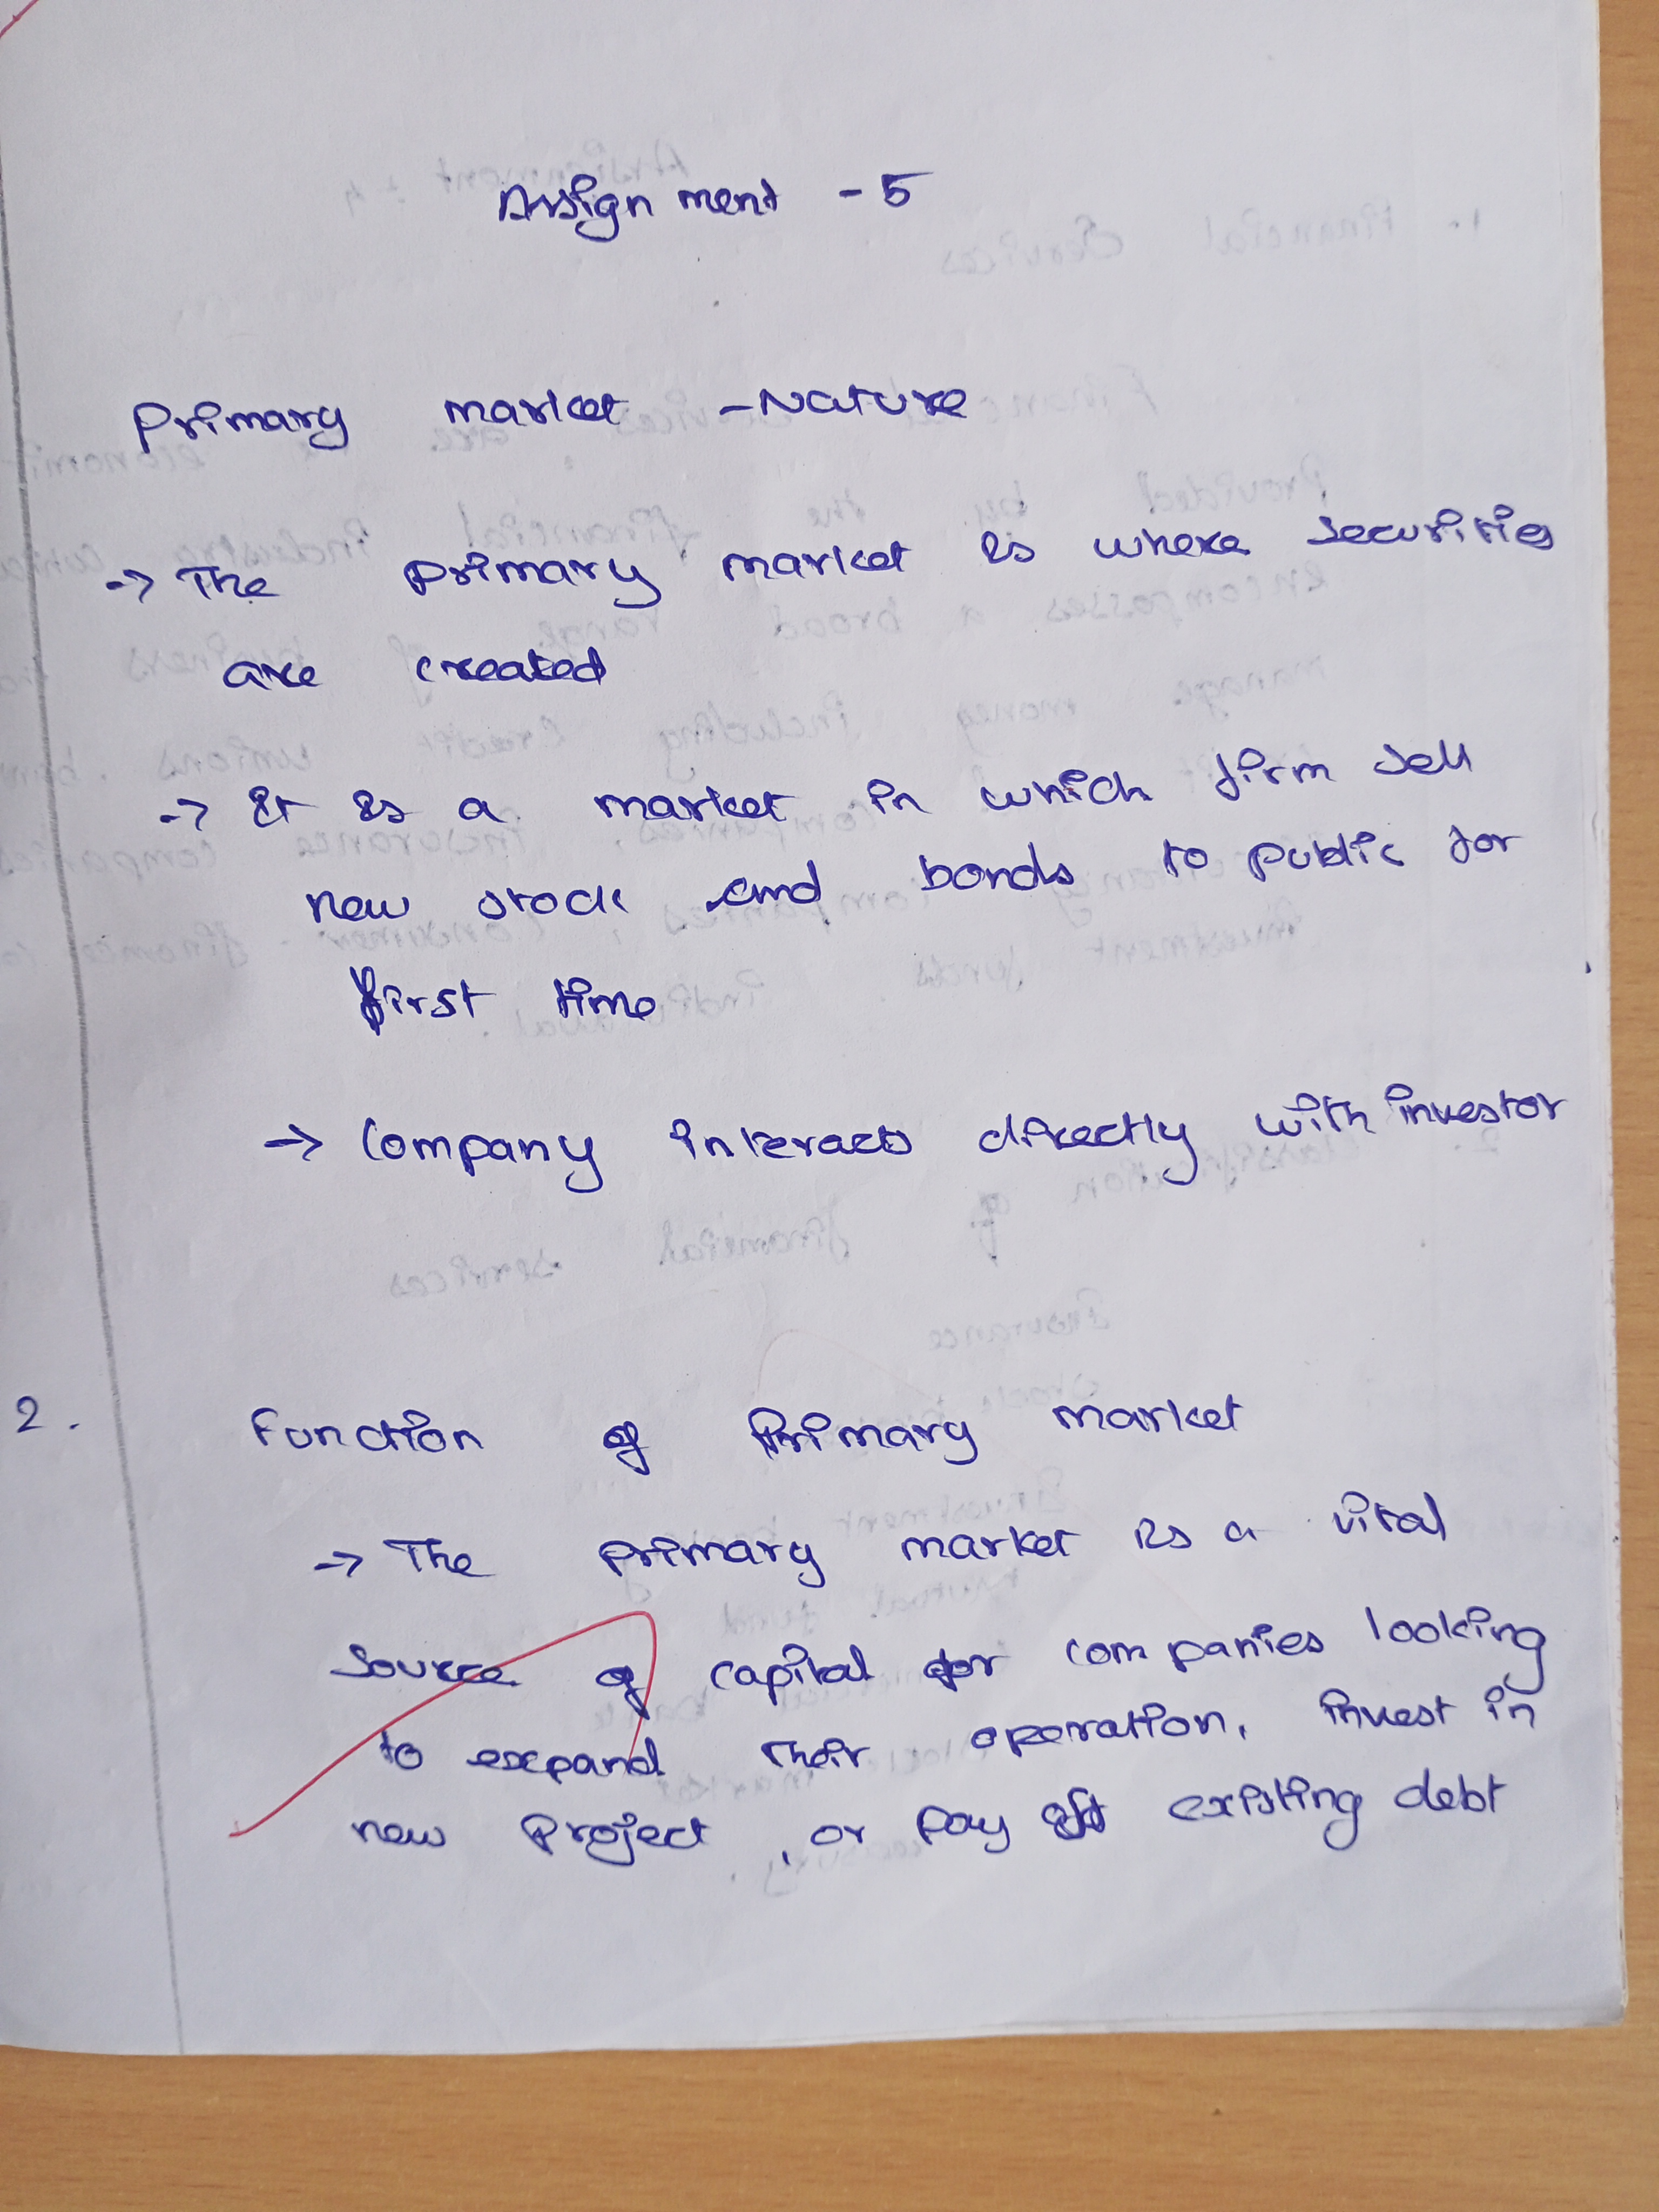 Assignment - 5
Primary market - Nature
-> The primary market is where securities
are created
-> It is a market in which firm sell
new stock and bonds to public for
first time
-> Company interacts directly with investor
2. Function of Primary market
-> The primary market is a vital
source of capital for companies looking
to expand their operation, invest in
new project, or pay off existing debt